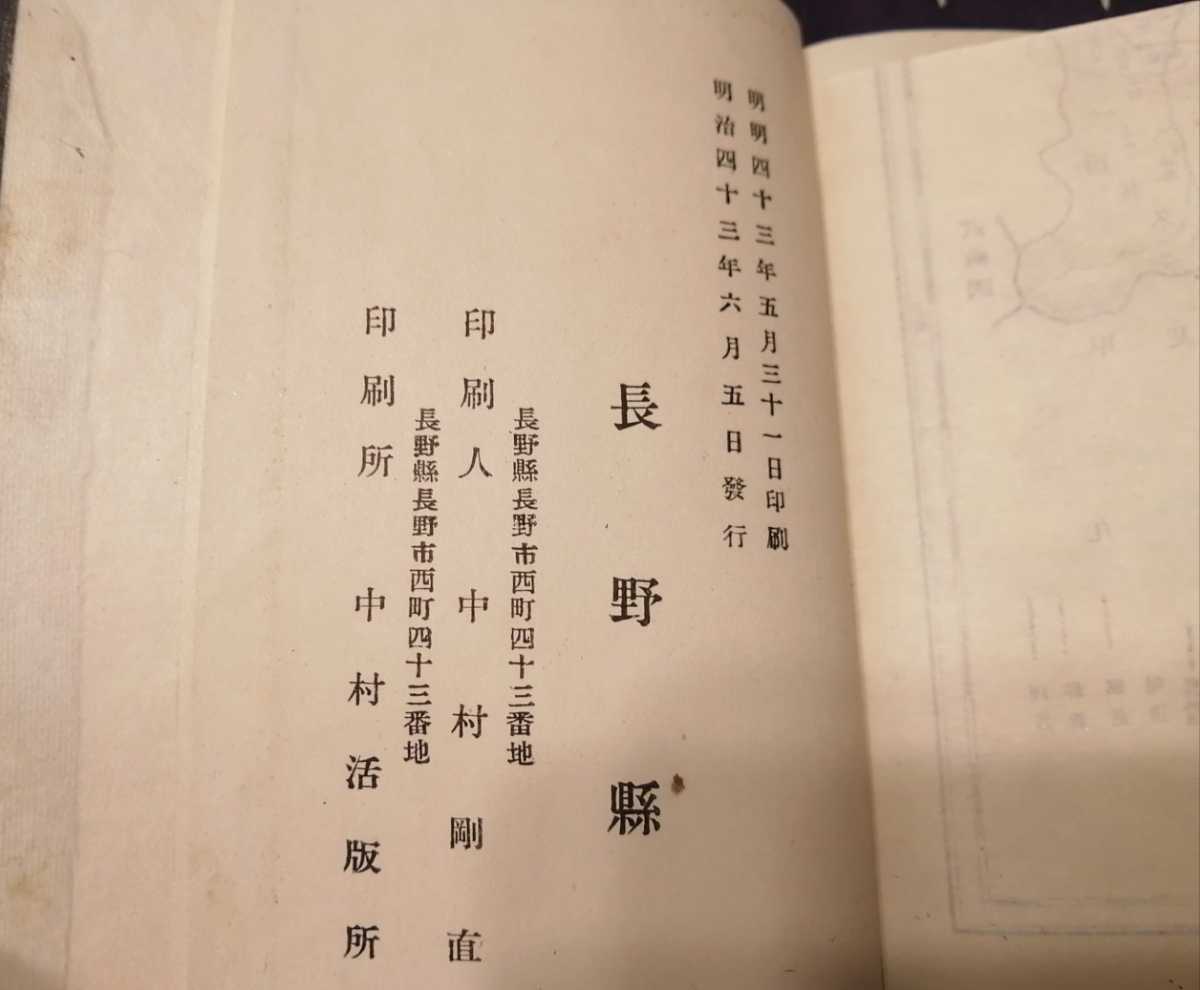 明明四十三年五月三十一日印刷
明治四十三年六月五日發行
長野縣
長野縣長野市西町四十三番地
印刷人 中村剛直
長野縣長野市西町四十三番地
印刷所 中村活版所